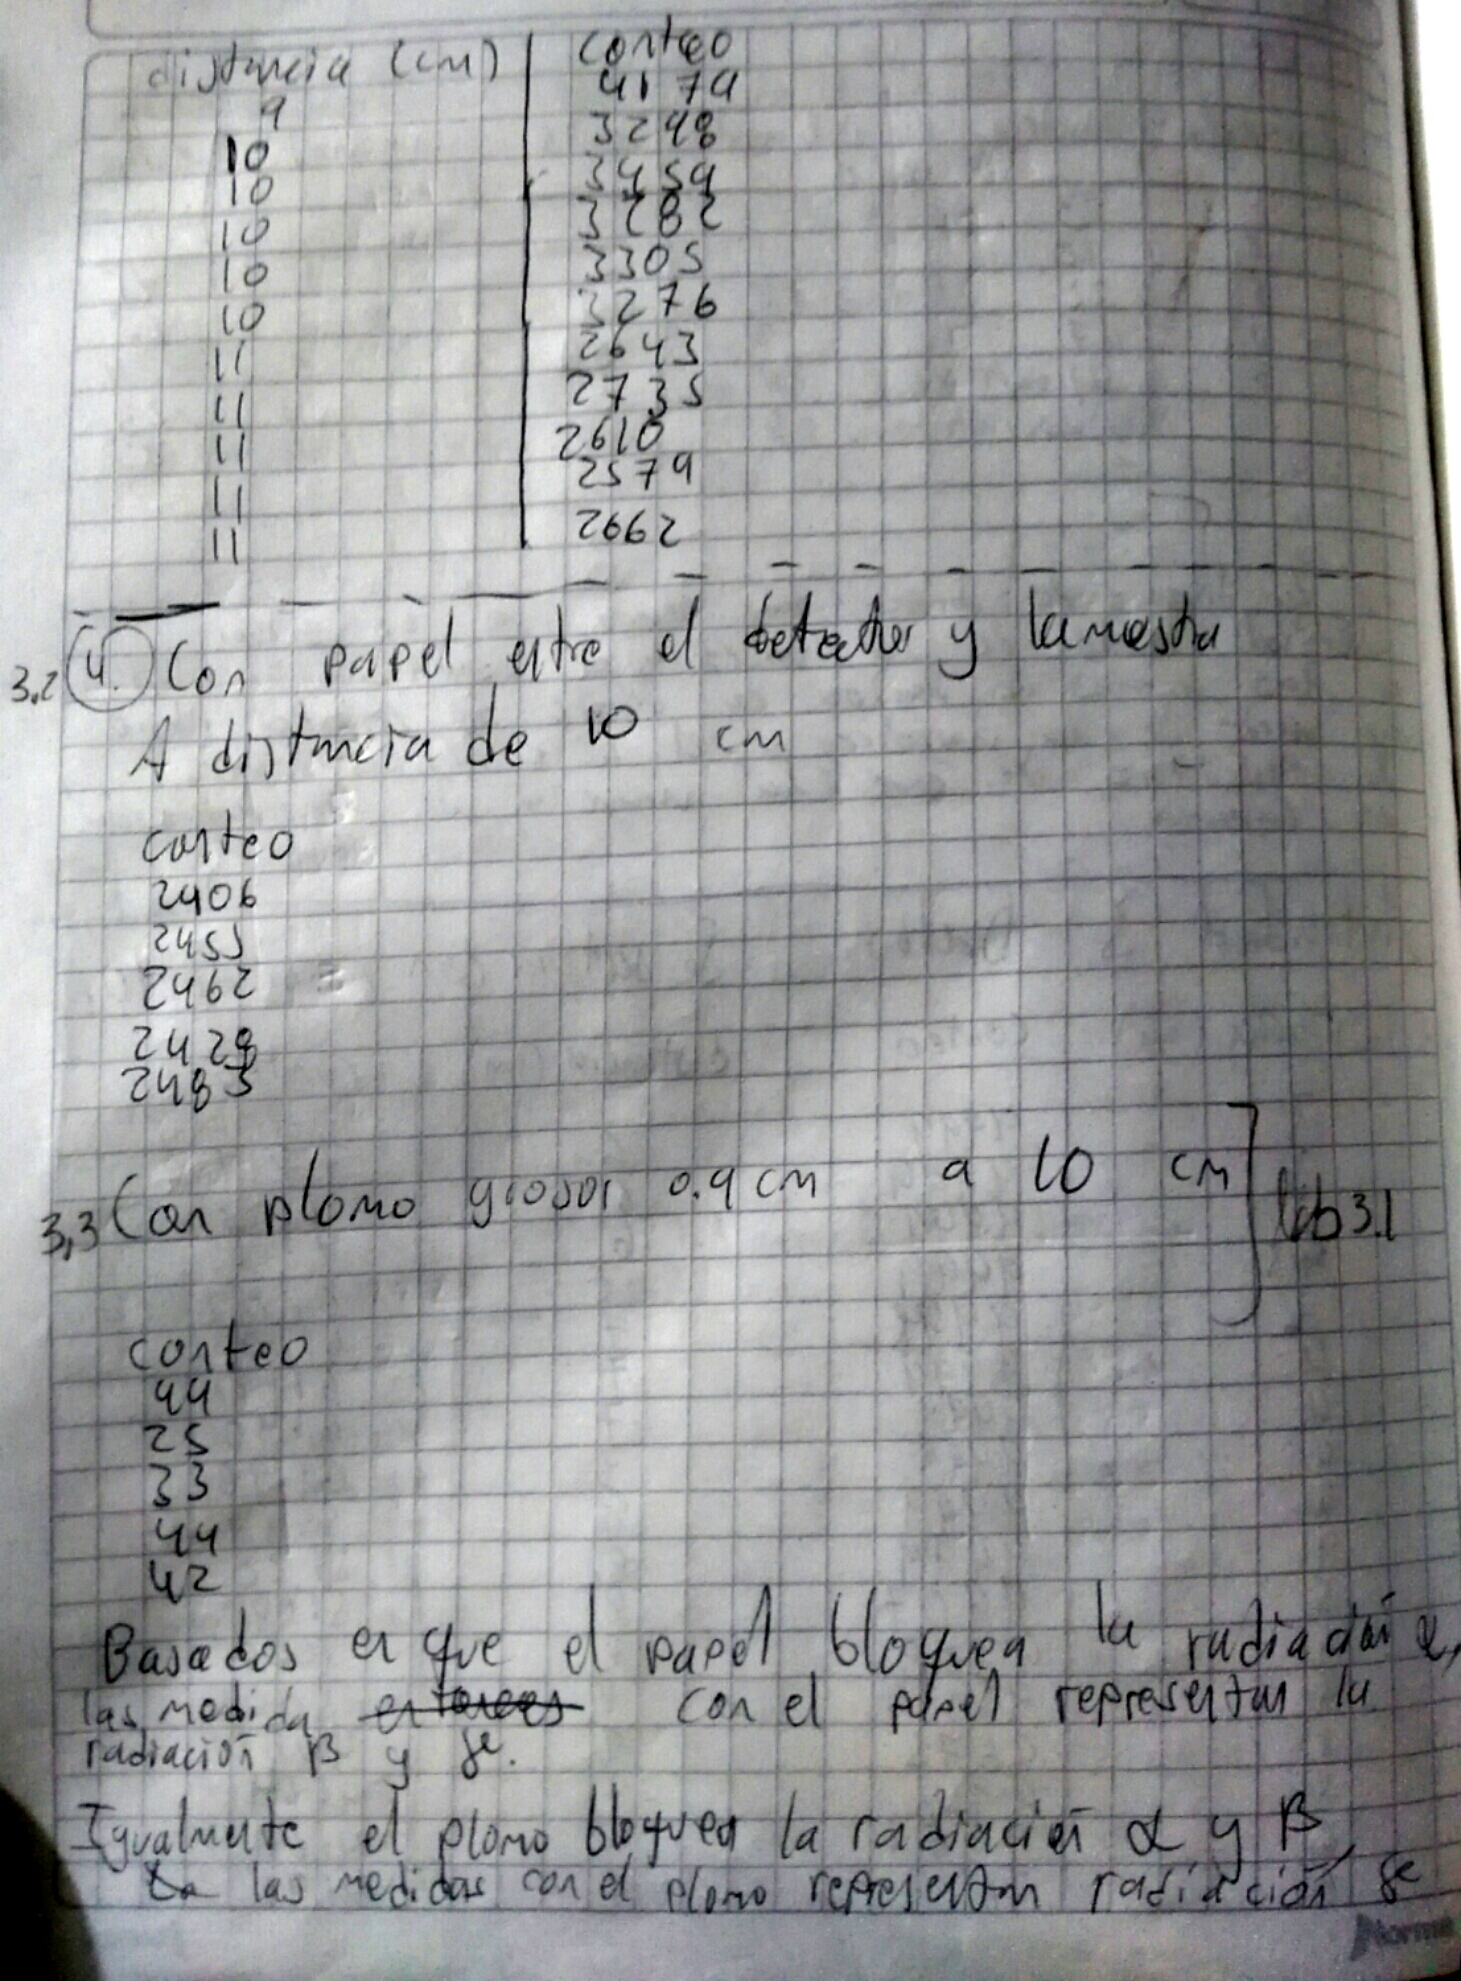 distancia (cm) | conteo
9 4174
10 3248
10 3459
10 3282
10 3305
10 3276
11 2643
11 2735
11 2610
11 2579
11 2662
3.2 4. Con papel entre el detector y la muestra
A distancia de 10 cm
conteo
2406
2455
2462
2429
2483
3,3 Con plomo grosor 0.9 cm a 10 cm ] lab 3.1
conteo
44
25
33
44
42
Basados en que el papel bloquea la radiación α,
las medida entonces con el papel representan la
radiación β y γ.
Igualmente el plomo bloquea la radiación α y β,
La las medidas con el plomo representan radiación γ
Norma